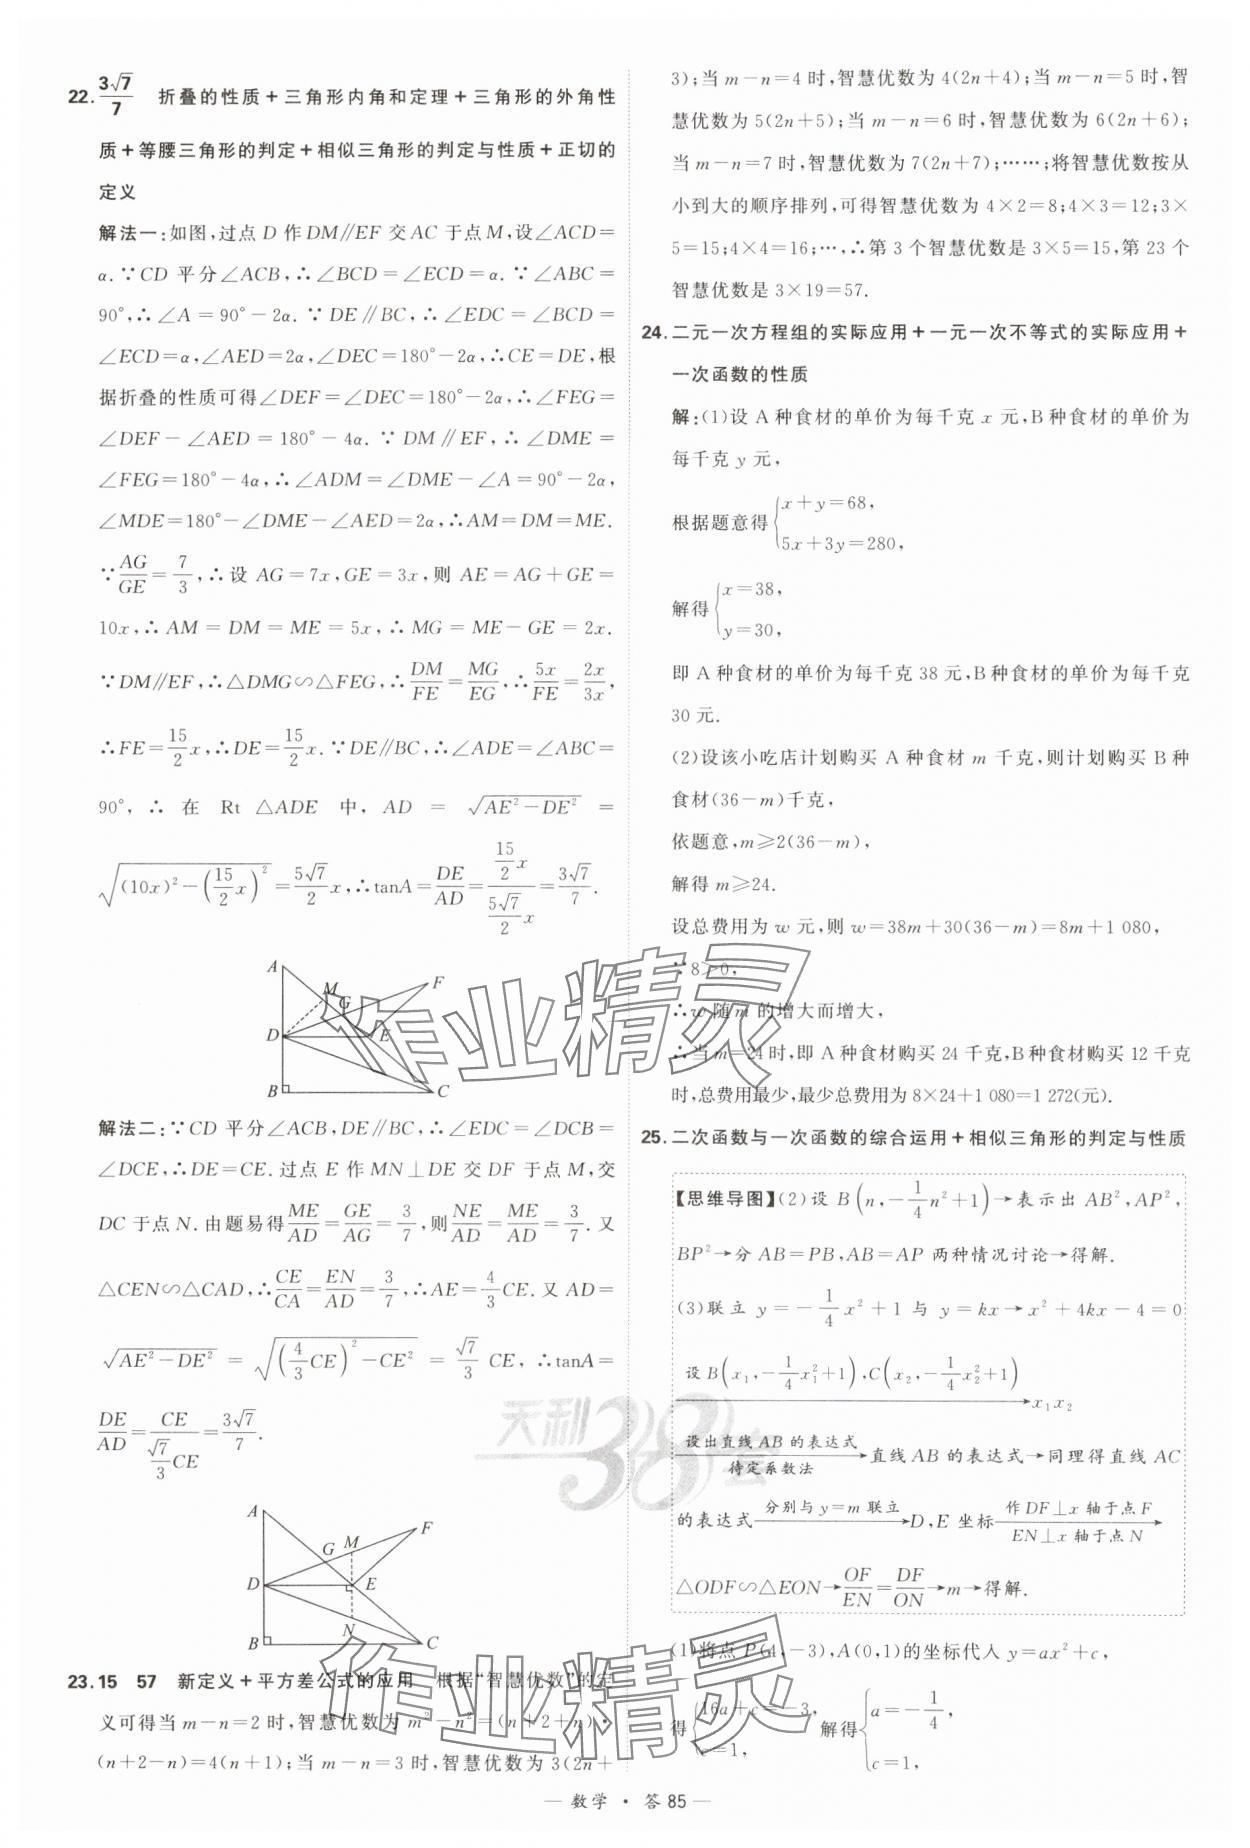 22. 3√7/7 折叠的性质+三角形内角和定理+三角形的外角性
质+等腰三角形的判定+相似三角形的判定与性质+正切的
定义
解法一:如图,过点 D 作 DM∥EF 交 AC 于点 M,设∠ACD=
α. ∵CD 平分∠ACB,∴∠BCD=∠ECD=α. ∵∠ABC=
90°,∴∠A=90°-2α. ∵DE∥BC,∴∠EDC=∠BCD=
∠ECD=α,∠AED=2α,∠DEC=180°-2α,∴CE=DE,根
据折叠的性质可得∠DEF=∠DEC=180°-2α,∴∠FEG=
∠DEF-∠AED=180°-4α. ∵DM∥EF,∴∠DME=
∠FEG=180°-4α,∴∠ADM=∠DME-∠A=90°-2α,
∠MDE=180°-∠DME-∠AED=2α,∴AM=DM=ME.
∵AG/GE=7/3,∴设 AG=7x,GE=3x,则 AE=AG+GE=
10x,∴AM=DM=ME=5x,∴MG=ME-GE=2x.
∵DM∥EF,∴△DMG∽△FEG,∴DM/FE=MG/EG,∴5x/FE=2x/3x,
∴FE=15/2x,∴DE=15/2x. ∵DE∥BC,∴∠ADE=∠ABC=
90°,∴在 Rt△ADE 中,AD=√(AE²-DE²)=
√((10x)²-(15/2x)²)=5√7/2x,∴tanA=DE/AD=(15/2x)/(5√7/2x)=3√7/7.
A
M
F
G
D
E
B
C
解法二:∵CD 平分∠ACB,DE∥BC,∴∠EDC=∠DCB=
∠DCE,∴DE=CE. 过点 E 作 MN⊥DE 交 DF 于点 M,交
DC 于点 N. 由题易得ME/AD=GE/AG=3/7,则NE/AD=ME/AD=3/7. 又
△CEN∽△CAD,∴CE/CA=EN/AD=3/7,∴AE=4/3CE. 又 AD=
√(AE²-DE²)=√((4/3CE)²-CE²)=√7/3CE,∴tanA=
DE/AD=CE/(√7/3CE)=3√7/7.
A
F
G
M
D
E
N
B
C
23. 15 57 新定义+平方差公式的应用 根据“智慧优数”的定
义可得当 m-n=2 时,智慧优数为 m²-n²=(n+2+n)·
(n+2-n)=4(n+1);当 m-n=3 时,智慧优数为 3(2n+
3);当 m-n=4 时,智慧优数为 4(2n+4);当 m-n=5 时,智
慧优数为 5(2n+5);当 m-n=6 时,智慧优数为 6(2n+6);
当 m-n=7 时,智慧优数为 7(2n+7);……;将智慧优数按从
小到大的顺序排列,可得智慧优数为 4×2=8;4×3=12;3×
5=15;4×4=16;…,∴第 3 个智慧优数是 3×5=15,第 23 个
智慧优数是 3×19=57.
24. 二元一次方程组的实际应用+一元一次不等式的实际应用+
一次函数的性质
解:(1)设 A 种食材的单价为每千克 x 元,B 种食材的单价为
每千克 y 元,
根据题意得{x+y=68,
5x+3y=280,
解得{x=38,
y=30,
即 A 种食材的单价为每千克 38 元,B 种食材的单价为每千克
30 元.
(2)设该小吃店计划购买 A 种食材 m 千克,则计划购买 B 种
食材(36-m)千克,
依题意,m≥2(36-m),
解得 m≥24.
设总费用为 w 元,则 w=38m+30(36-m)=8m+1 080,
∵8>0,
∴w 随 m 的增大而增大,
∴当 m=24时,即 A 种食材购买 24 千克,B 种食材购买 12 千克
时,总费用最少,最少总费用为 8×24+1 080=1 272(元).
25. 二次函数与一次函数的综合运用+相似三角形的判定与性质
【思维导图】(2)设 B(n,-1/4n²+1)→表示出 AB²,AP²,
BP²→分 AB=PB,AB=AP 两种情况讨论→得解.
(3)联立 y=-1/4x²+1 与 y=kx→x²+4kx-4=0
设B(x₁,-1/4x₁²+1),C(x₂,-1/4x₂²+1)→x₁x₂
设出直线 AB 的表达式 待定系数法→直线 AB 的表达式→同理得直线 AC
的表达式 分别与 y=m 联立→D,E 坐标 作 DF⊥x 轴于点 F EN⊥x 轴于点 N→
△ODF∽△EON→OF/EN=DF/ON→m→得解.
(1)将点 P(4,-3),A(0,1)的坐标代入 y=ax²+c,
得{16a+c=-3,
c=1,
解得{a=-1/4,
c=1,
— 数学 · 答 85 —
作业精灵
天利38套
作业精灵